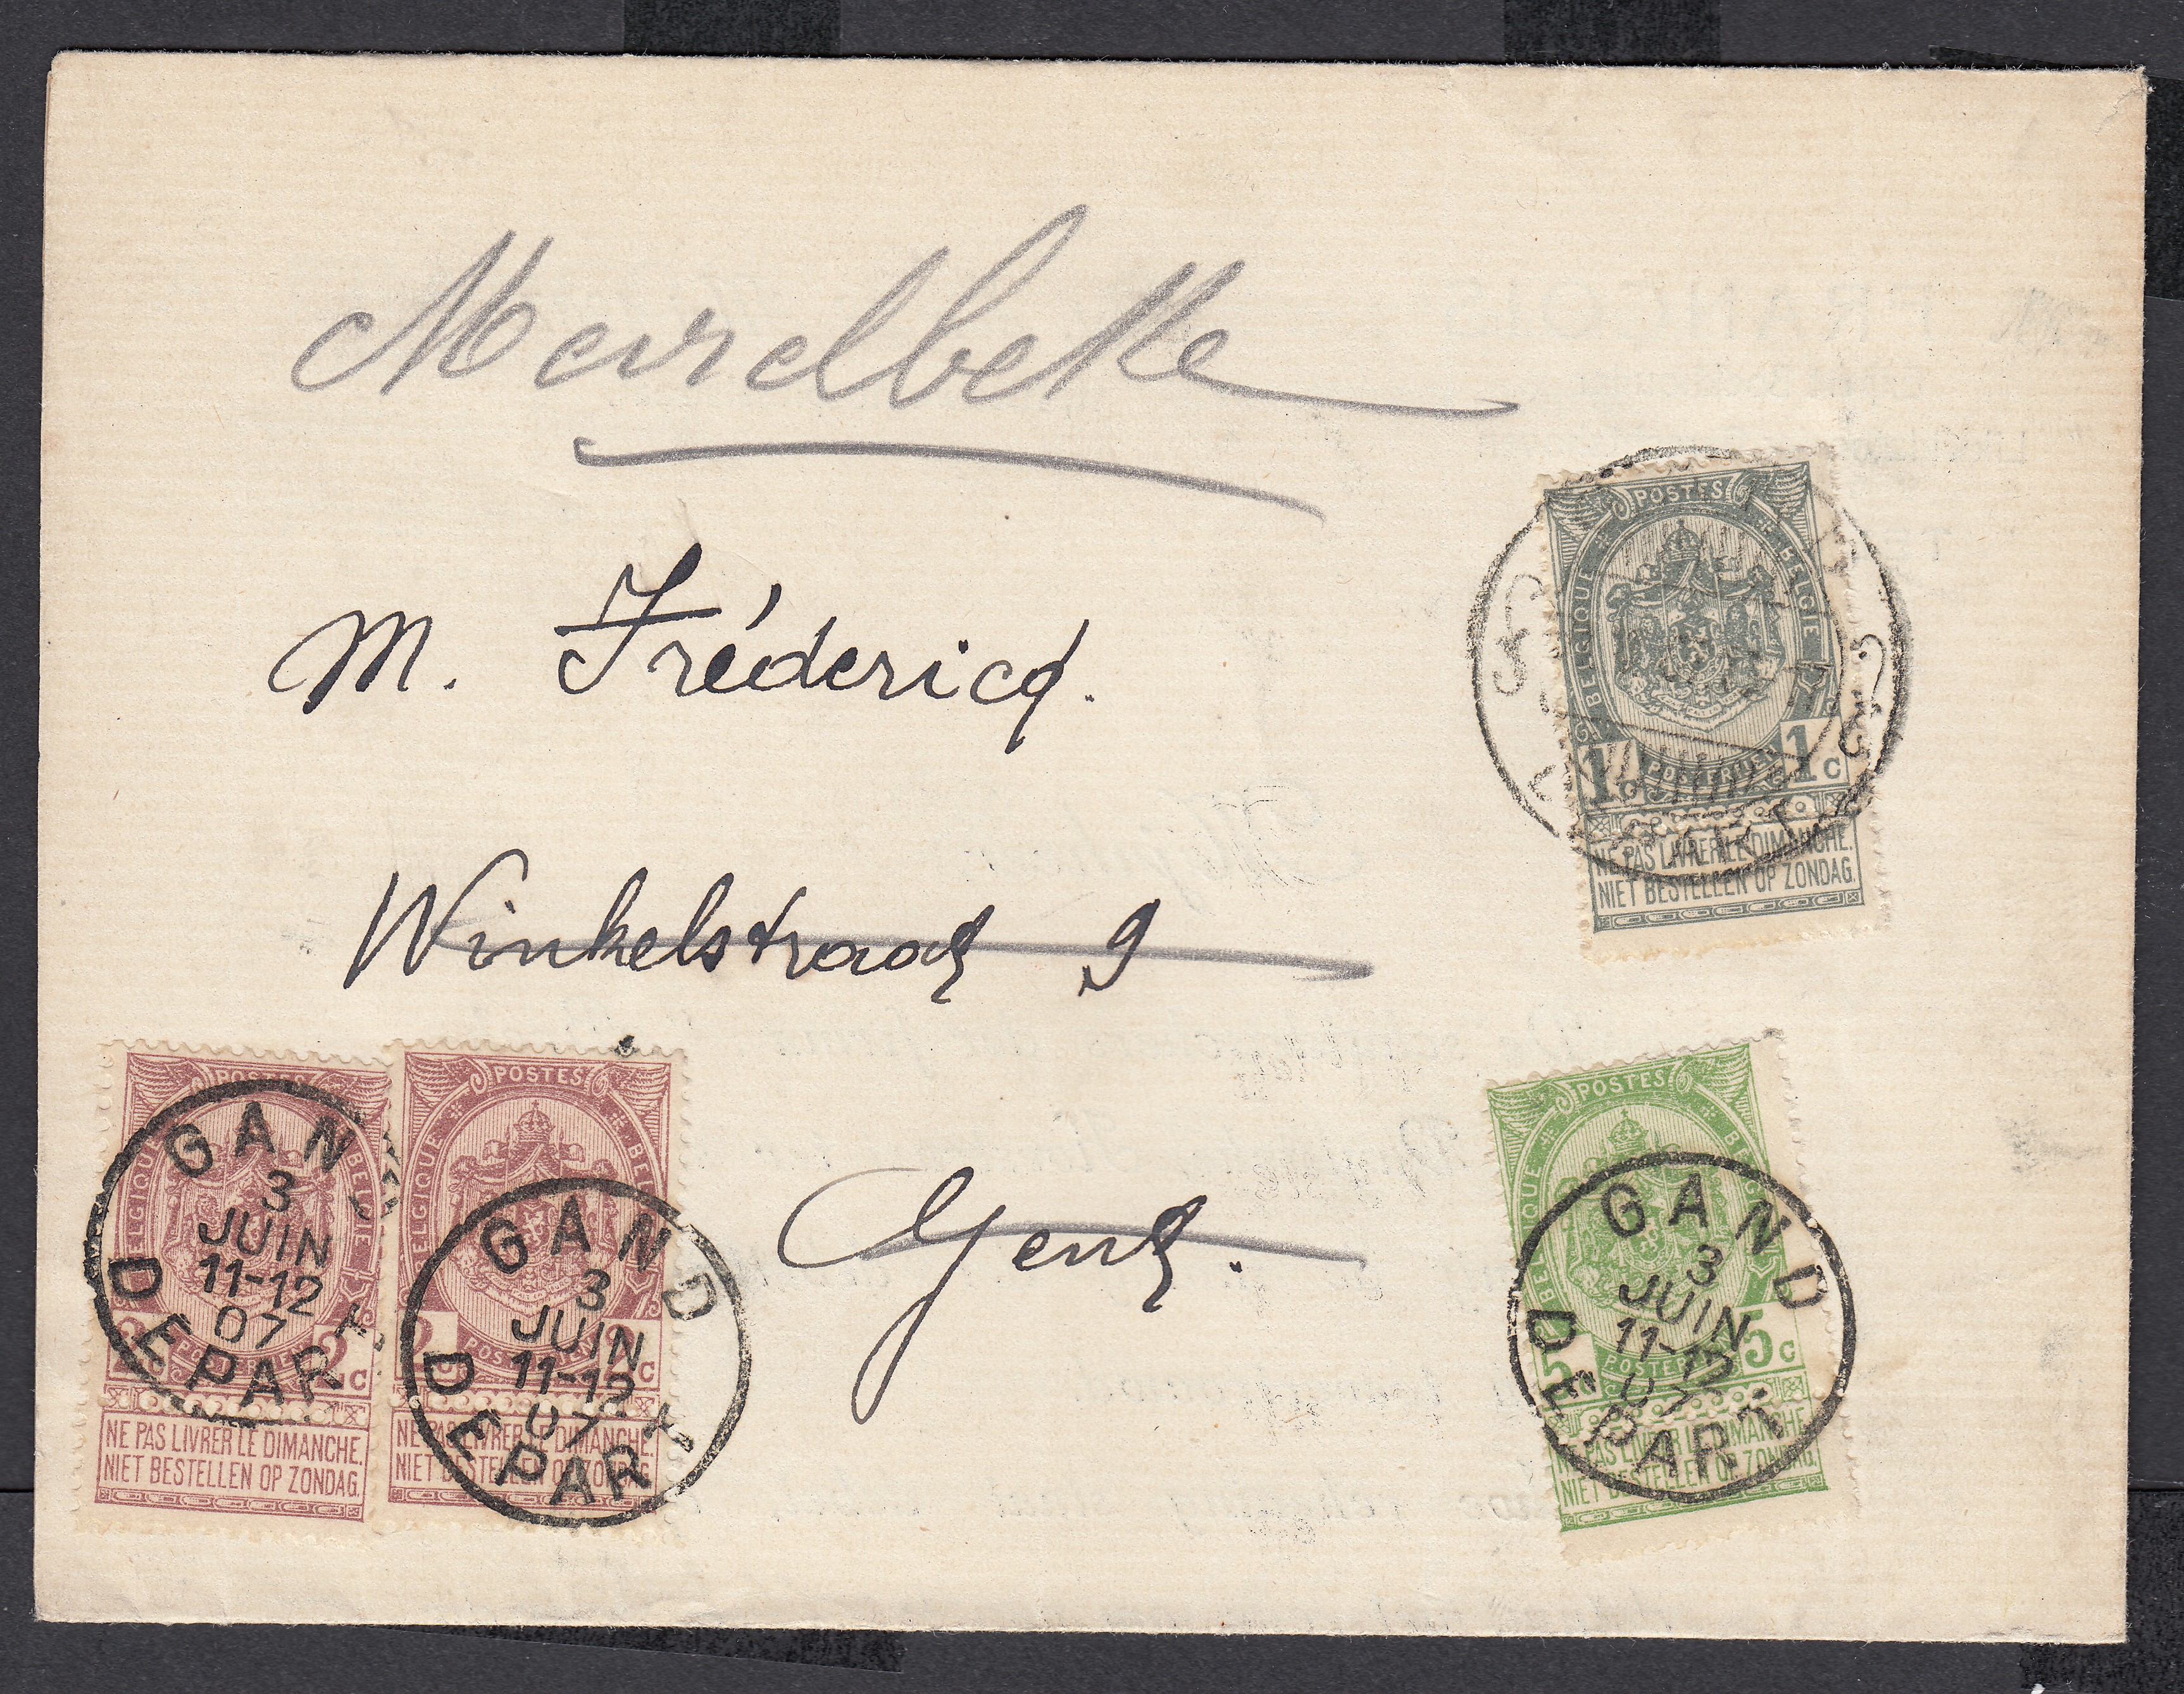 Meirelbeke
M. Frédericq.
Winkelstraat 9
Gent.
POSTES
BELGIQUE BELGIE
POSTERIJEN
1c 1c
NE PAS LIVRER LE DIMANCHE.
NIET BESTELLEN OP ZONDAG.
POSTES
BELGIQUE BELGIE
2c
NE PAS LIVRER LE DIMANCHE.
NIET BESTELLEN OP ZONDAG.
GAND
3
JUIN
11-12
07
DEPART
POSTES
BELGIQUE
2c
NE PAS LIVRER LE DIMANCHE.
NIET BESTELLEN OP ZONDAG.
GAND
3
JUIN
11-12
07
DEPART
POSTES
5c
NE PAS LIVRER LE DIMANCHE.
NIET BESTELLEN OP ZONDAG.
GAND
3
JUIN
11-12
07
DEPART